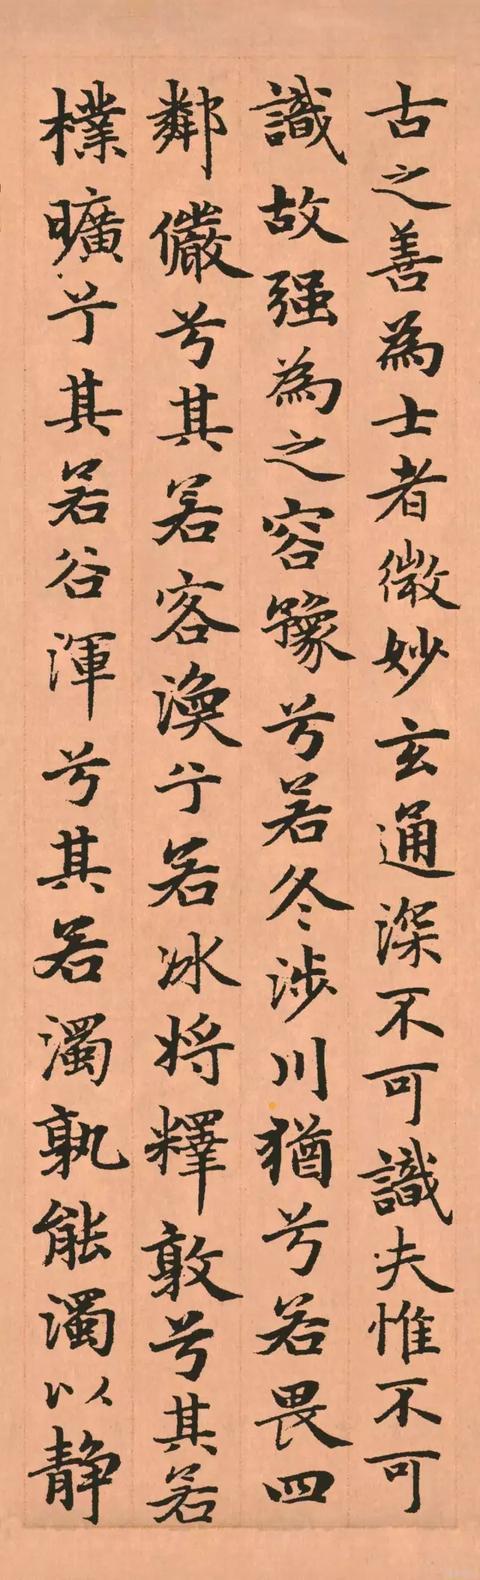 古之善為士者微妙玄通深不可識夫惟不可
識故强為之容豫兮若冬涉川猶兮若畏四
鄰儼兮其若客渙兮若冰將釋敦兮其若
樸曠兮其若谷渾兮其若濁孰能濁以静